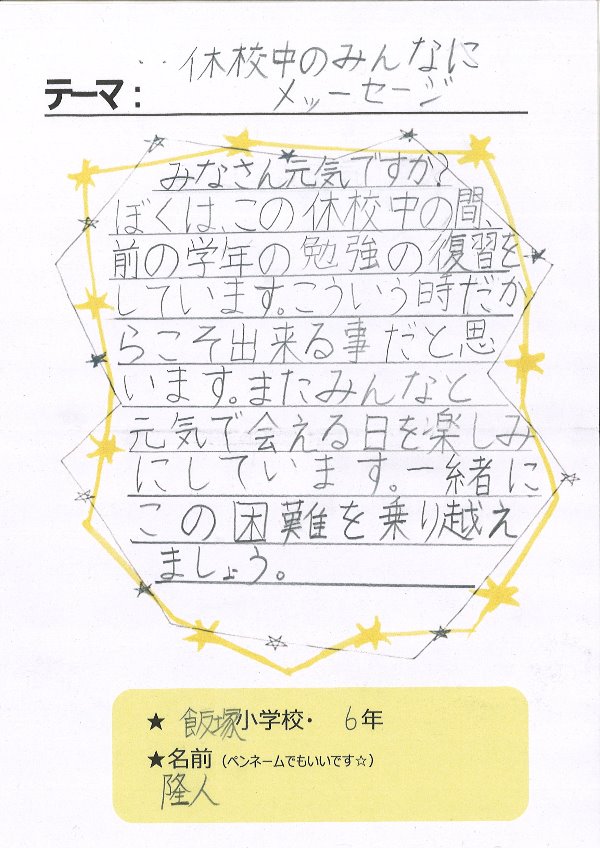 休校中のみんなに
テーマ： メッセージ
みなさん元気ですか?
ぼくは、この休校中の間、
前の学年の勉強の復習を
しています。こういう時だか
らこそ出来る事だと思
います。またみんなと
元気で会える日を楽しみ
にしています。一緒に
この困難を乗り越え
ましょう。
★ 飯塚小学校・ 6年
★名前（ペンネームでもいいです☆）
隆人